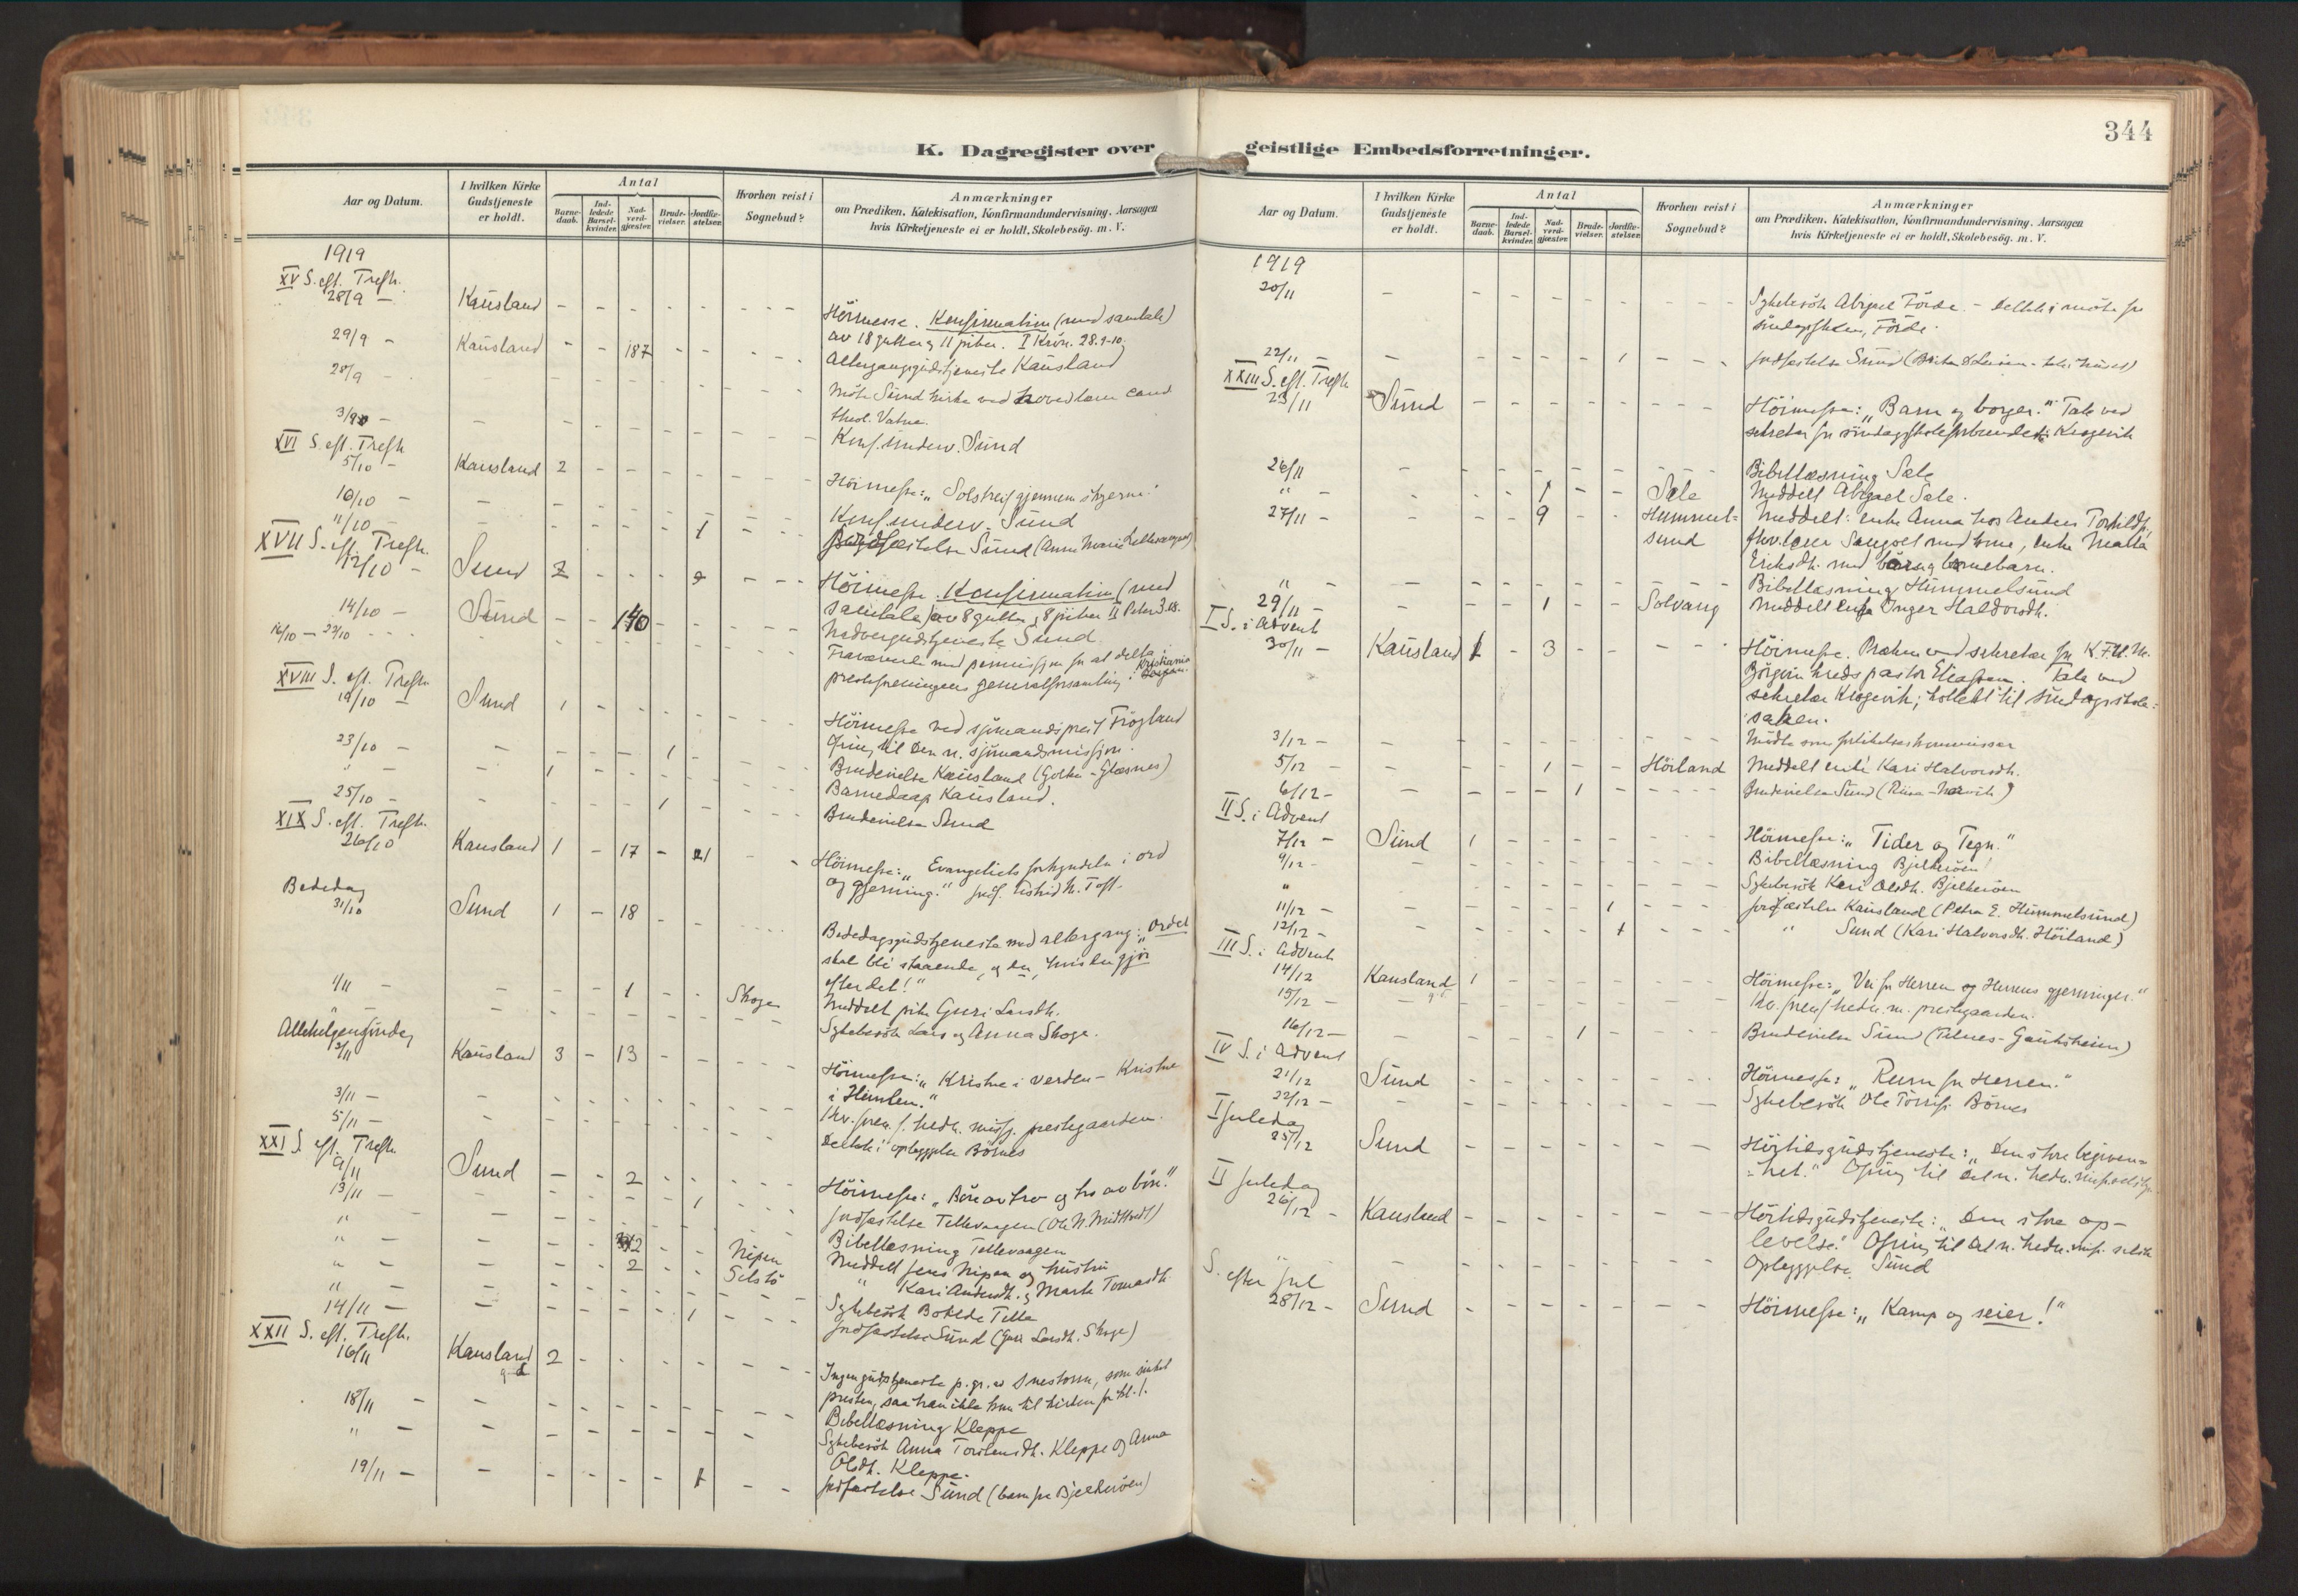 344
K. Dagregister over
Aar og Datum.
I hvilken Kirke Gudstjeneste er holdt.
Antal
Barne-daab.
Ind-ledede Barsel-kvinder.
Nad-verd-gjæster.
Brude-vielser.
Jordfæ-stelser.
Hvorhen reist i Sognebud?
Anmærkninger
om Prædiken, Katekisation, Konfirmandundervisning, Aarsagen
hvis Kirketjeneste ei er holdt, Skolebesøg. m. V.
1919
XV S. eft. Trefh.
28/9 - Kausland - - - - - Höimesse. Konfirmation (med samtale)
av 18 gutter og 11 piker. I Krön. 28.9-10.
29/9 - Kausland - - 187 - - Altergangsgudstjeneste Kausland
28/9 - Möte Sund kirke ved hovedlærer cand
theol. Vatne.
Konf. underv. Sund
XVI S. eft. Trefh.
5/10 - Kausland 2 - - - - Höimesse: „Solstreif gjennem skyerne."
10/10 - Konf. underv. Sund
11/10 - 1 Jordfæstelse Sund (Anne Marie
XVII S. eft. Trefh.
12/10 - Sund 2 - - - Höimesse. Konfirmation (med
samtale) av 8 gutter, 8 piker II Peter 3.18.
14/10 - Sund - - 140 - - Nadvergudstjeneste Sund.
16/10 - Fraværende med permission for at delta i
presteforeningens generalforsamling i Kristiania
XVIII S. eft. Trefh.
19/10 - Sund 1 - - - - Höimesse ved sjömandsprest Frögland
Ofring til Den n. sjömandsmission.
23/10 - 1 Brudevielse Kausland (Golten - Glæsnes)
" 1 Barnedaap Kausland.
25/10 - 1 Brudevielse Sund
XIX S. eft. Trefh.
26/10 Kausland 1 - 17 - Höimesse: „Evangeliets forkyndelse i ord
og gjerning."
Bededag
31/10 Sund 1 - 18 - - Bededagsgudstjeneste med altergang: „Ordet
skal bli staaende, og du, hvis du gjör
efter det!"
1/11 - 1 - - Skoge Meddelt pike Guri Larsdh.
" Sykebesök Lars og Anna Skoge.
Allehelgensöndag
2/11 Kausland 3 - 13 - - Höimesse: „Kristne i verden - Kristne
i Himlen."
3/11 - Kv. foren. f. hedn. missj. prestegaarden.
5/11 - Deltok i oplæggelse Börnes
XXI S. eft. Trefh.
9/11 Sund - - 2 - - Höimesse: „Bön av tro og tro av bön."
13/11 - 1 Jordfæstelse Tellevaagen (Ole N.
" Bibellæsning Tellevaagen
" 2 - - Nipen Meddelt Jens Nipen og hustru
" 2 - - Selstö " Kari Andersdh. og Marta Tomasdh.
" Sykebesök Botilde Telle
14/11 - 1 Jordfæstelse Sund (Guri Larsdh. Skoge)
XXII S. eft. Trefh.
16/11 Kausland 2 - - - - Ingen gudstjeneste p. gr. av snestorm, som sinket
presten, saa han ikke kom til kirken för kl. 1.
18/11 - Bibellæsning Kleppe
" Sykebesök Anna Torstensdh. Kleppe og Anna
Olsdh. Kleppe.
19/11 - 1 Jordfæstelse Sund (barn fra Bjelkeröen)
geistlige Embedsforretninger.
Aar og Datum.
I hvilken Kirke Gudstjeneste er holdt.
Antal
Barne-daab.
Ind-ledede Barsel-kvinder.
Nad-verd-gjæster.
Brude-vielser.
Jordfæ-stelser.
Hvorhen reist i Sognebud?
Anmærkninger
om Prædiken, Katekisation, Konfirmandundervisning, Aarsagen
hvis Kirketjeneste ei er holdt, Skolebesøg. m. V.
1919
20/11 - Sykebesök Abigael Förde. - Deltok i möte for
söndagsskolen, Förde.
22/11 - 1 Jordfæstelse Sund
XXIII S. eft. Trefh.
23/11 Sund - - - - - Höimesse: „Barn og borger." Tale ved
sekretær for söndagsskoleforbundet Krogevik
26/11 - Bibellæsning Sæle
" - 1 - - Sæle Meddelt Abigael Sæle.
27/11 - 9 - - Hummel= Meddelt: enke Anna hos Anders
sund fhv. lærer Sangolt med kone, enke Malta
Eriksdh. med barn og barnebarn.
" - Bibellæsning Hummelsund
29/11 - 1 - - Solvang Meddelt enke Inger Haldorsdh.
I S. i Advent
30/11 - Kausland 1 - 3 - - Höimesse. Præken ved sekretær for K.F.U.M.
Björgvin kreds pastor Eliassen. Tale ved
sekretær Krogevik; kollekt til söndagsskole=
saken.
3/12 - Mödte som forlikelseskommissær
5/12 - 1 - - Höiland Meddelt enke Kari Halvorsdh.
6/12 - 1 Brudevielse Sund
II S. i Advent
7/12 - Sund 1 - - - - Höimesse: „Tider og Tegn."
9/12 - Bibellæsning Bjelkeröen
" Sykebesök Kari Olsdh. Bjelkeröen
11/12 - 1 Jordfæstelse Kausland (Petra E. Hummelsund)
12/12 - 1 " Sund (Kari Halvorsdh. Höiland)
III S. i Advent
14/12 Kausland 1 - - - - Höimesse: „Vei for Herren og Herrens gjerninger."
15/12 - Kv. foren. f. hedn. m. prestegaarden.
16/12 - 1 Brudevielse Sund (Telnes - Gauksheim)
IV S. i Advent
21/12 Sund - - - - - Höimesse: „Rum for Herren."
22/12 - Sykebesök Ole Börnes
I Juledag
25/12 Sund - - - - - Höitidsgudstjeneste: „Den store begiven=
=het." Ofring til det n. hedn.
II Juledag
26/12 - Kausland - - - - - Höitidsgudstjeneste: „Den store op-
levelse." Ofring til det n. hedn. miss. selsk.
" Oplæggelse Sund
S. efter jul
28/12 - Sund - - - - - Höimesse: „Kamp og seier!"